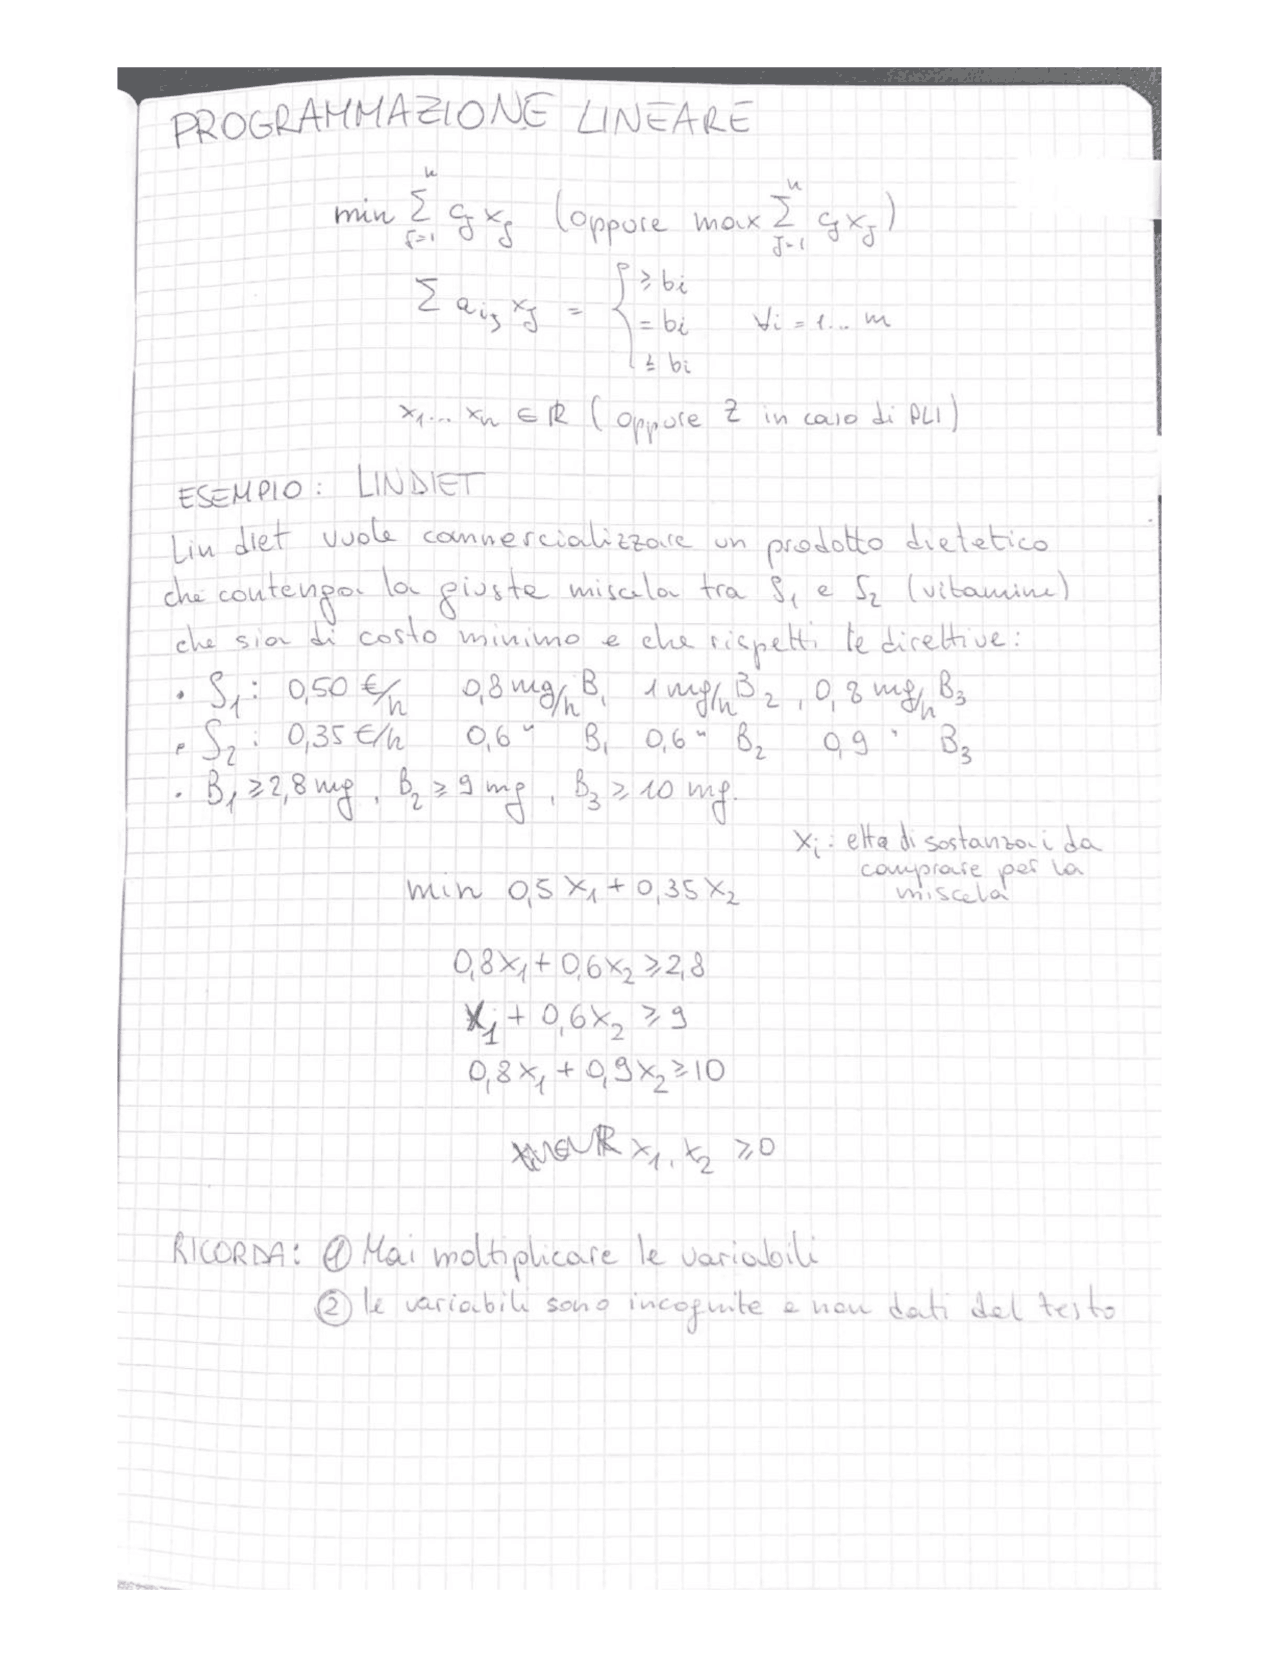 PROGRAMMAZIONE LINEARE
min Σ_{j=1}^{n} cj xj (oppure max Σ_{j=1}^{n} cj xj)
Σ aij xj = { ≥ bi
= bi ∀i = 1... m
≤ bi
x1... xn ∈ ℝ (oppure Z in caso di PLI)
ESEMPIO: LINDIET
Lin diet vuole commercializzare un prodotto dietetico
che contenga la giusta miscela tra S1 e S2 (vitamine)
che sia di costo minimo e che rispetti le direttive:
• S1: 0,50 €/h 0,8 mg/h B1 1 mg/h B2, 0,8 mg/h B3
• S2: 0,35 €/h 0,6 " B1 0,6 " B2 0,9 " B3
• B1 ≥ 2,8 mg, B2 ≥ 9 mg, B3 ≥ 10 mg.
xi: etta di sostanza i da
comprare per la
miscela
min 0,5 x1 + 0,35 x2
0,8x1 + 0,6x2 ≥ 2,8
x1 + 0,6x2 ≥ 9
0,8x1 + 0,9x2 ≥ 10
x1, x2 ≥ 0
RICORDA: ① Mai moltiplicare le variabili
② le variabili sono incognite e non dati del testo